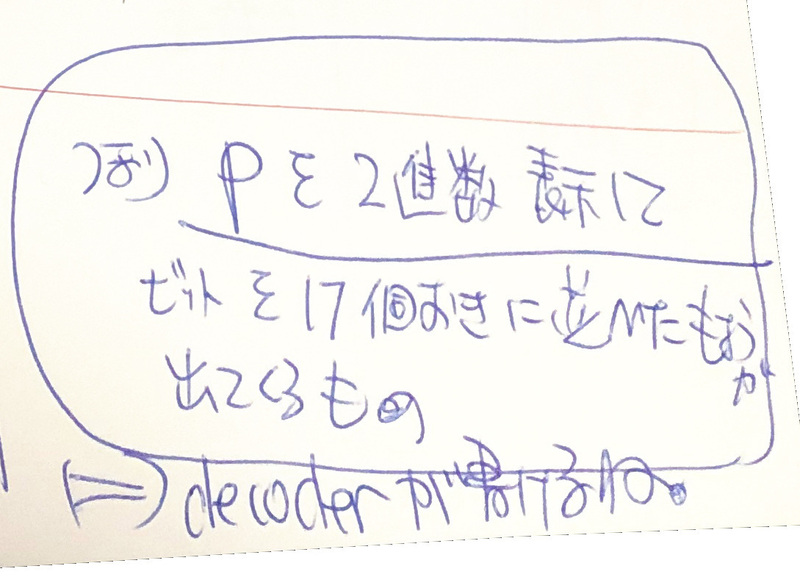 つまり Pを2進数 表示して
ビットを17個おきに並べたもの
が
出てくるもの
⇒ decoderが書けるね。